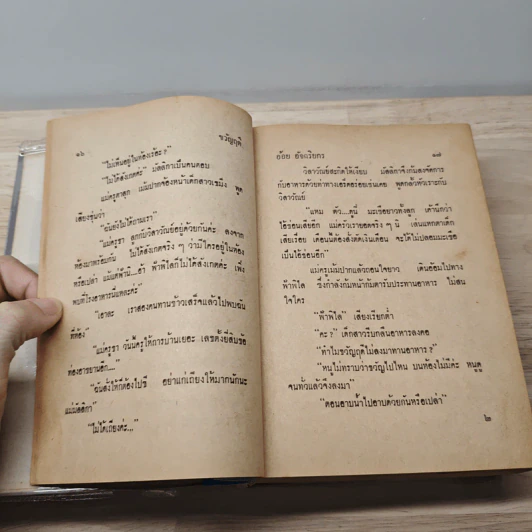 ๑๖
ขวัญฤดี
"ไม่เห็นอยู่ในห้องเรอะ?"
"ไม่ได้สังเกตค่ะ" มัลลิกาเป็นคนตอบ
แม่ครูตาลุก เม้มปากจ้องหน้าเด็กสาวเขม็ง พูด
เสียงขุ่นว่า
"ฉันยังไม่ได้ถามเรา"
"แม่ครูขา ลูกกับวิลาวัณย์อยู่ด้วยกันค่ะ ลงจาก
ห้องมาพร้อมกัน ไม่ได้สังเกตจริง ๆ ว่ามีใครอยู่ในห้อง
หรือเปล่า แม้แต่พี่พิไลก็ไม่ได้สังเกตค่ะ เพิ่ง
พบที่โรงอาหารนี่แหละค่ะ"
"เอาละ เราสองคนทานข้าวเสร็จแล้วไปพบฉัน
ที่ห้อง"
"แม่ครูขา วันนี้ครูให้การบ้านเยอะ เลขตั้งยี่สิบข้อ
ท่องอาขยานอีก..."
"ฉันสั่งให้ก็ต้องไปซี อย่าเถียงให้มากนักนะ
แม่มัลลิกา"
"ไม่ได้เถียงค่ะ..."
อ้อย อัจฉริยกร
๑๗
วิลาวัณย์สะกิดให้เงียบ มัลลิกาจึงก้มลงจัดการ
กับอาหารด้วยท่าทางเอร็ดอร่อยเช่นเคย พูดกลั้วหัวเราะกับ
วิลาวัณย์
"แหม ตัว...ดูนี่ มะเขือยาวทั้งลูก เค้านึกว่า
ไอ้ช่อนเสียอีก แม่ครัวเรายอดจริง ๆ นี่ เล่นแหกตาเด็ก
เสียเรื่อย เดือนนี้ต้องสั่งตัดเงินเดือน จะได้ไม่ปลอมมะเขือ
เป็นไอ้ช่อนอีก"
แม่ครูเม้มปากแล้วถอนใจยาว เดินอ้อมไปทาง
พี่พิไล ซึ่งกำลังก้มหน้าก้มตารับประทานอาหาร ไม่สน
ใจใคร
"พี่พิไล" เสียงเรียกต่ำ
"คะ?" เด็กสาวรีบกลืนอาหารลงคอ
"ทำไมขวัญฤดีไม่ลงมาทานอาหาร?"
"หนูไม่ทราบว่าขวัญไปไหน บนห้องไม่มีค่ะ หนูดู
จนทั่วแล้วจึงลงมา"
"ตอนอาบน้ำไปอาบด้วยกันหรือเปล่า"
๒